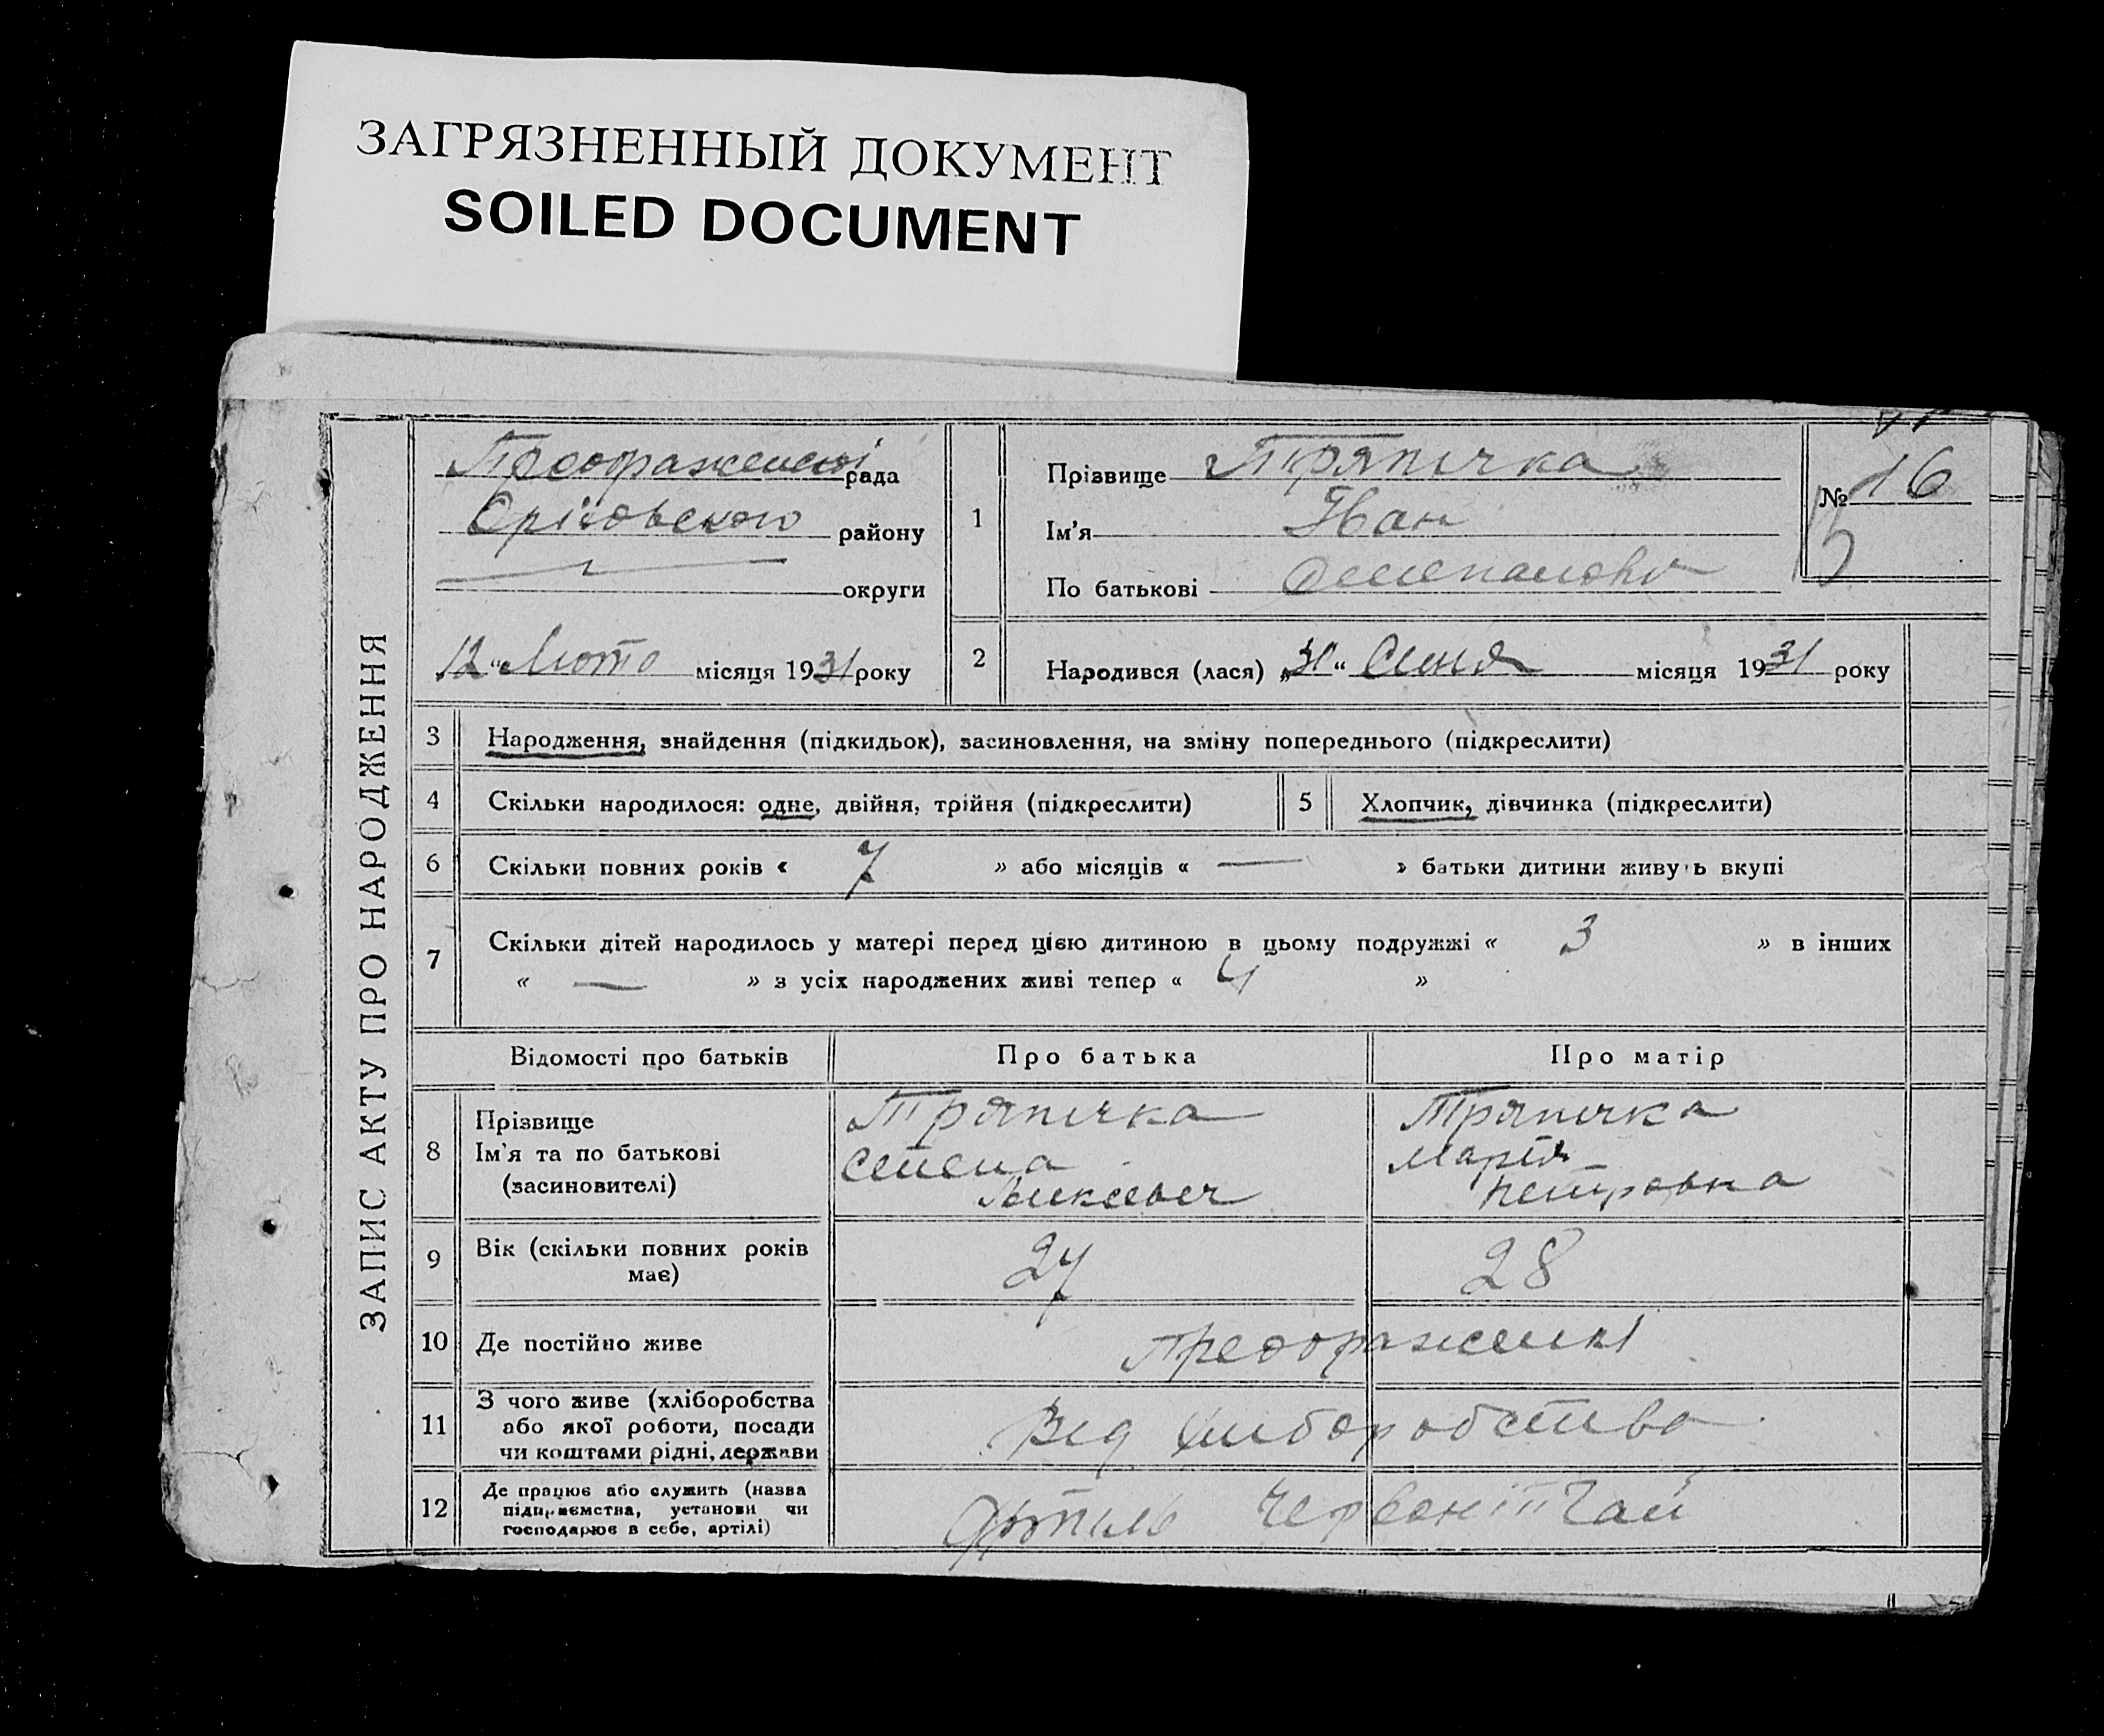 ЗАГРЯЗНЕННЫЙ ДОКУМЕНТ
SOILED DOCUMENT
ЗАПИС АКТУ ПРО НАРОДЖЕННЯ
рада
району
округи
12 " Лютого місяця 1931 року
1
Прізвище Тряпичка
Ім'я Иван
По батькові
№ 16
2
Народився (лася) „31“ Січня місяця 1931 року
3 Народження, знайдення (підкидьок), засиновлення, на зміну попереднього (підкреслити)
4 Скільки народилося: одне, двійня, трійня (підкреслити)
5 Хлопчик, дівчинка (підкреслити)
6 Скільки повних років « 7 » або місяців « — » батьки дитини живуть вкупі
7 Скільки дітей народилось у матері перед цією дитиною в цьому подружжі « 3 » в інших
« — » з усіх народжених живі тепер « 4 »
Відомості про батьків Про батька Про матір
8 Прізвище
Ім'я та по батькові
(засиновителі)
Тряпичка
Тряпичка
Марія
Петровна
9 Вік (скільки повних років
має)
27 28
10 Де постійно живе
11 З чого живе (хліборобства
або якої роботи, посади
чи коштами рідні, держави
Від хліборобства
12 Де працює або служить (назва
підприємства, установи чи
господарює в себе, артілі)
Артиль Червоній Гай